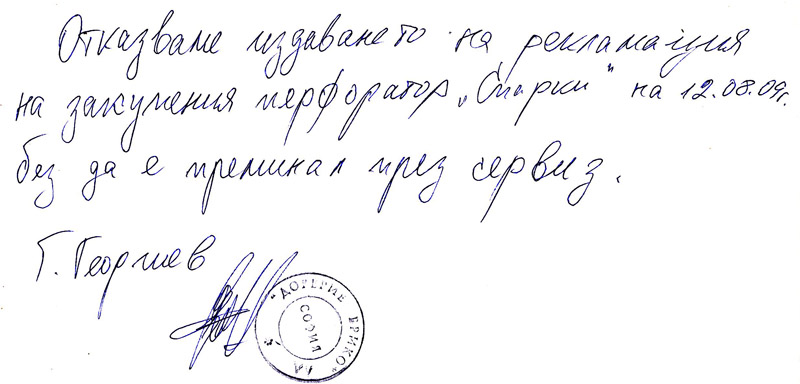 Отказваме издаването на рекламация
на закупения перфоратор „Спарки" на 12.08.09г.
без да е преминал през сервиз.
Г. Георгиев
"ДОВЕРИЕ БРИКО" АД
СОФИЯ